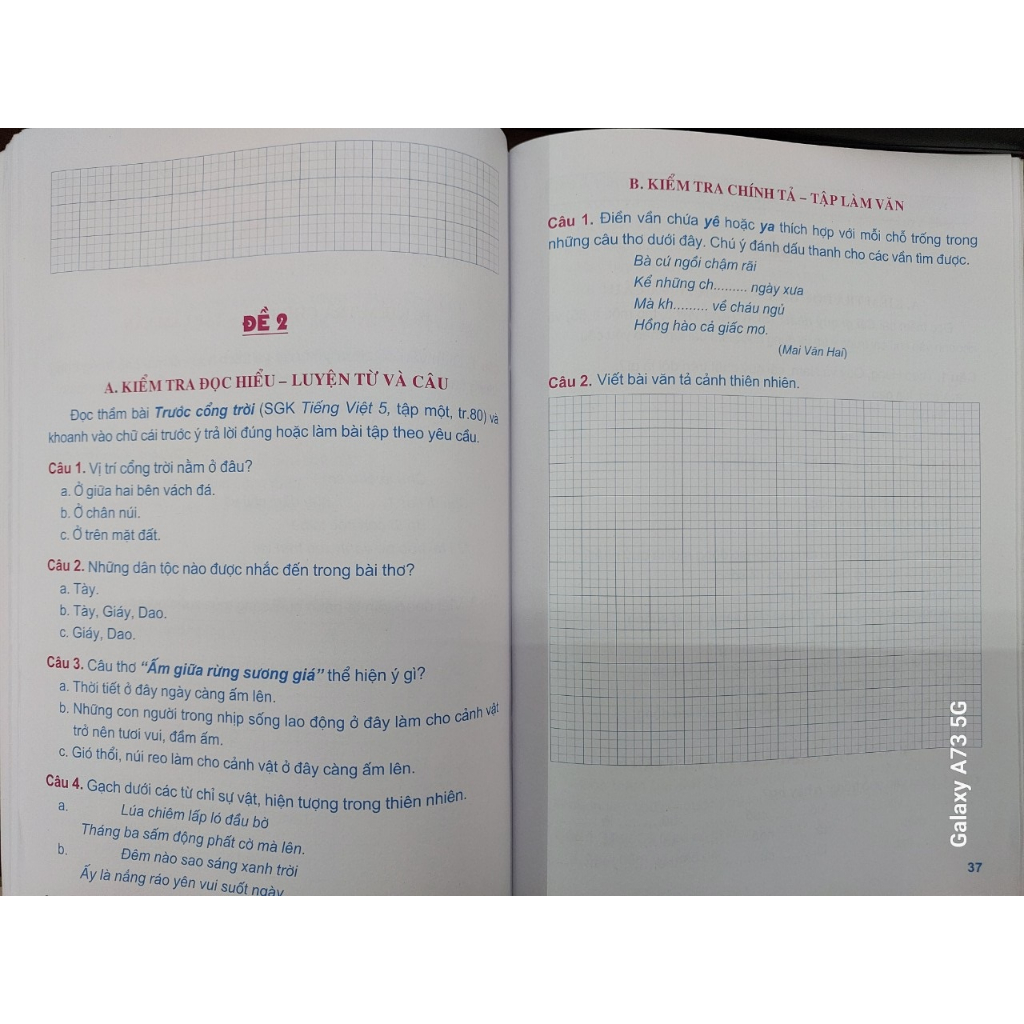 ĐỀ 2
A. KIỂM TRA ĐỌC HIỂU – LUYỆN TỪ VÀ CÂU
Đọc thầm bài Trước cổng trời (SGK Tiếng Việt 5, tập một, tr.80) và
khoanh vào chữ cái trước ý trả lời đúng hoặc làm bài tập theo yêu cầu.
Câu 1. Vị trí cổng trời nằm ở đâu?
a. Ở giữa hai bên vách đá.
b. Ở chân núi.
c. Ở trên mặt đất.
Câu 2. Những dân tộc nào được nhắc đến trong bài thơ?
a. Tày.
b. Tày, Giáy, Dao.
c. Giáy, Dao.
Câu 3. Câu thơ “Ấm giữa rừng sương giá” thể hiện ý gì?
a. Thời tiết ở đây ngày càng ấm lên.
b. Những con người trong nhịp sống lao động ở đây làm cho cảnh vật
trở nên tươi vui, đầm ấm.
c. Gió thổi, núi reo làm cho cảnh vật ở đây càng ấm lên.
Câu 4. Gạch dưới các từ chỉ sự vật, hiện tượng trong thiên nhiên.
a. Lúa chiêm lấp ló đầu bờ
Tháng ba sấm động phất cờ mà lên.
b. Đêm nào sao sáng xanh trời
Ấy là nắng ráo yên vui suốt ngày
B. KIỂM TRA CHÍNH TẢ – TẬP LÀM VĂN
Câu 1. Điền vần chứa yê hoặc ya thích hợp với mỗi chỗ trống trong
những câu thơ dưới đây. Chú ý đánh dấu thanh cho các vần tìm được.
Bà cứ ngồi chậm rãi
Kể những ch......... ngày xưa
Mà kh......... về cháu ngủ
Hồng hào cả giấc mơ.
(Mai Văn Hai)
Câu 2. Viết bài văn tả cảnh thiên nhiên.
37
Galaxy A73 5G